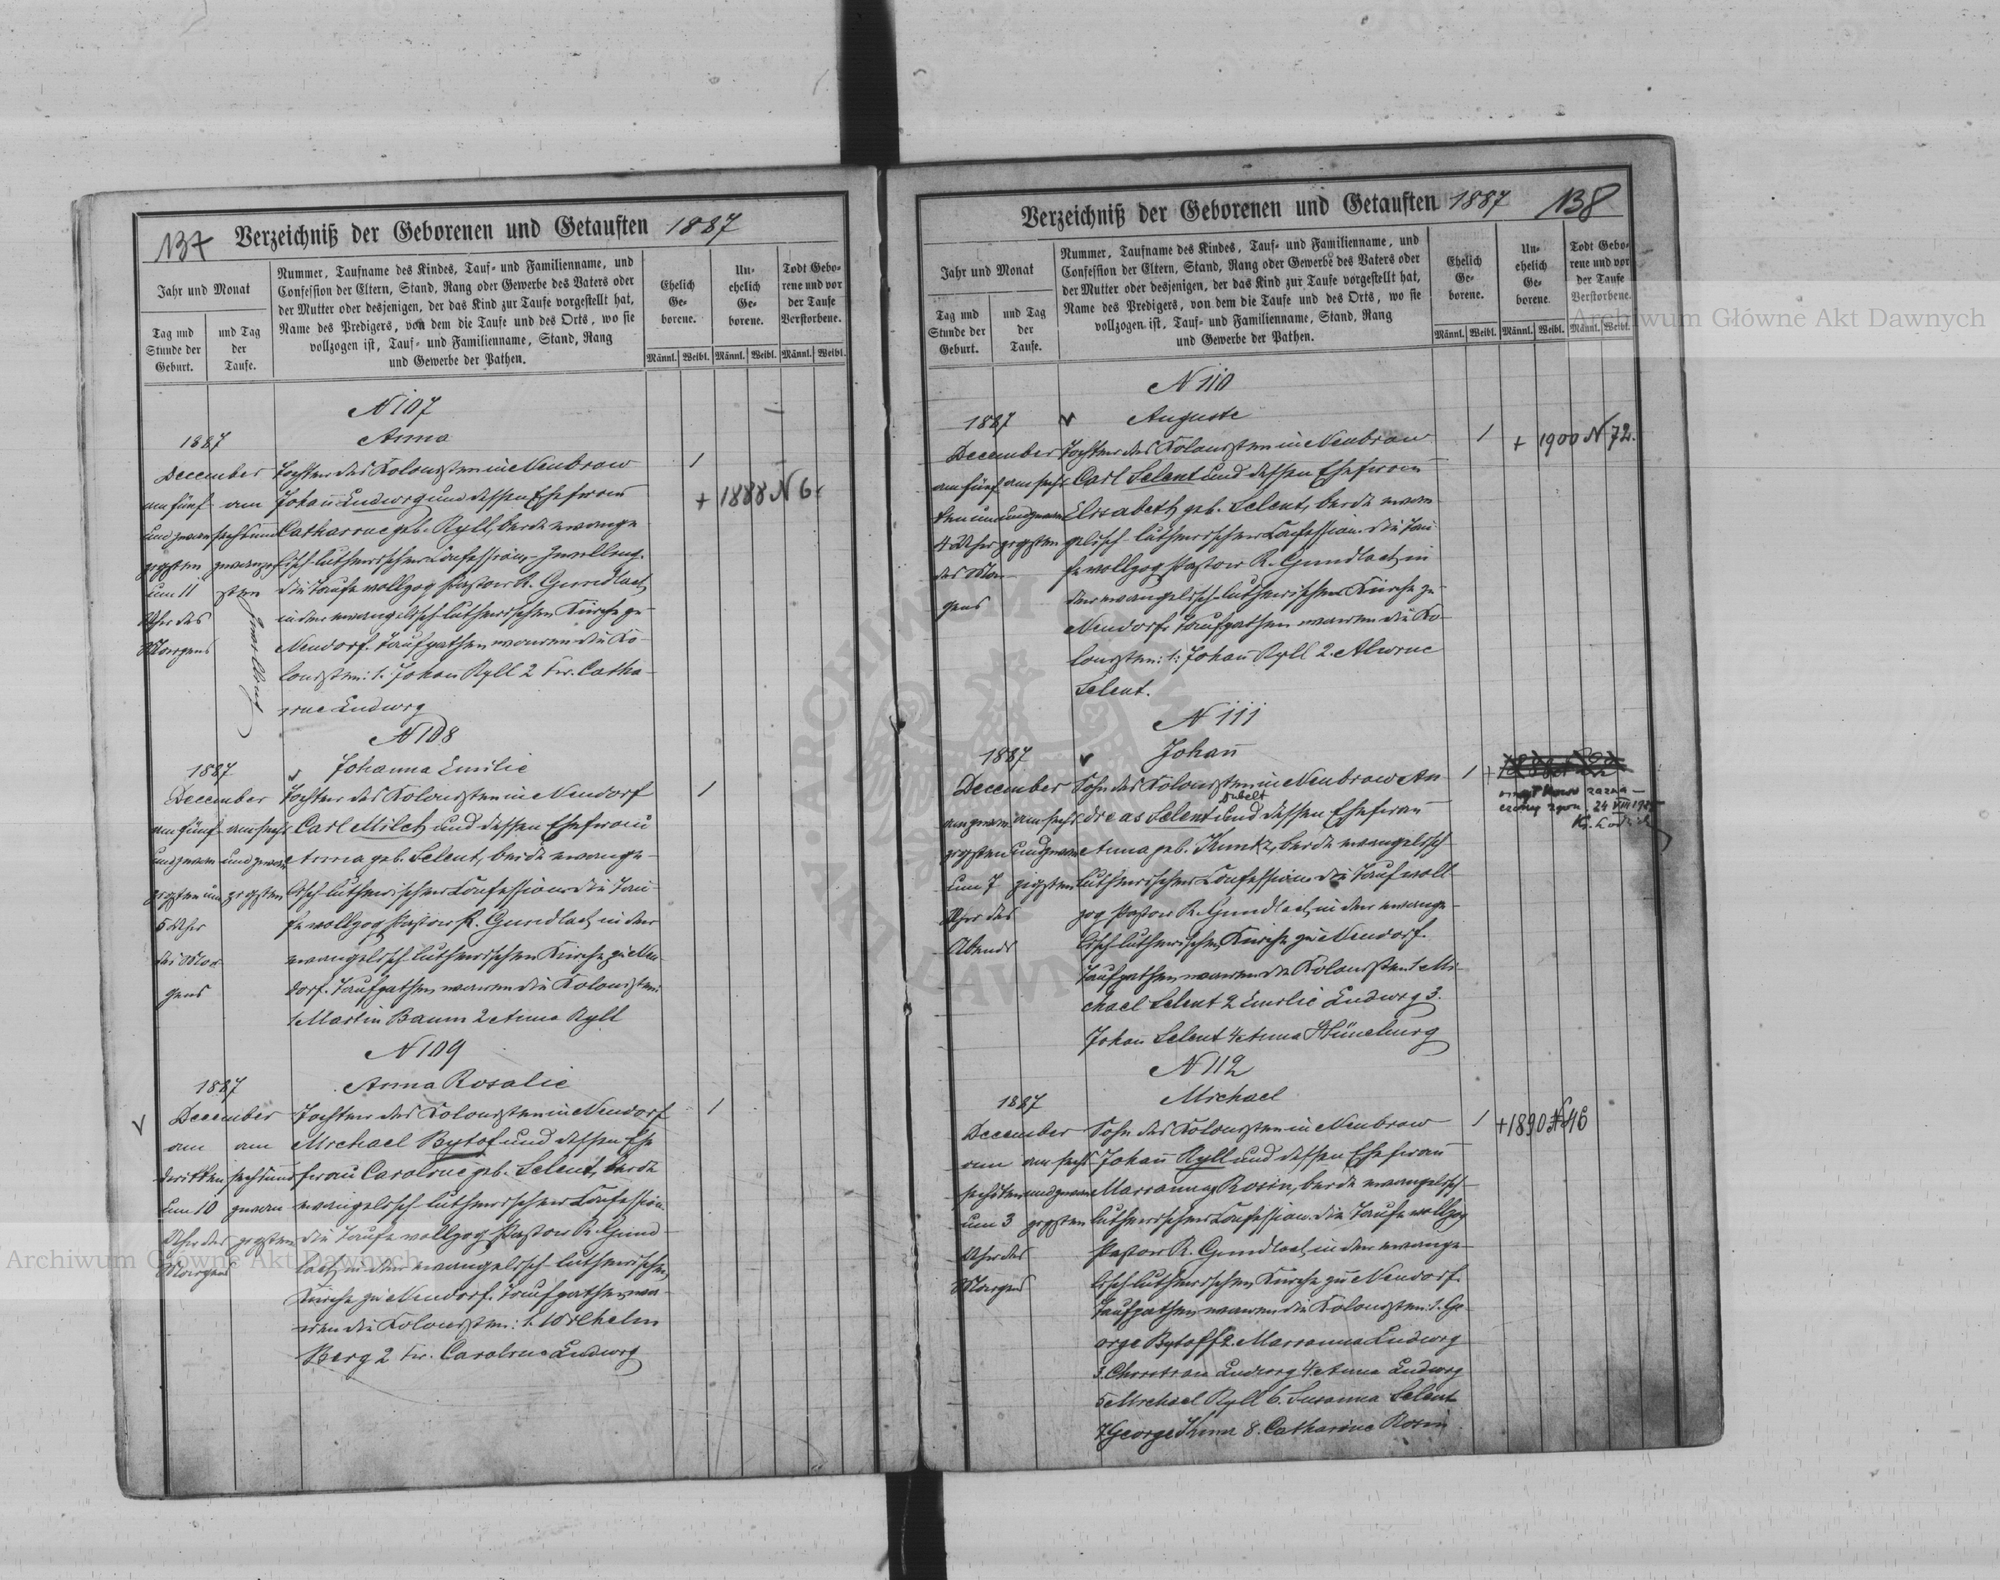 137 Verzeichniß der Geborenen und Getauften 1887
Jahr und Monat
Tag und Stunde der Geburt.
und Tag der Taufe.
Nummer, Taufname des Kindes, Tauf- und Familienname, und
Confession der Eltern, Stand, Rang oder Gewerbe des Vaters oder
der Mutter oder desjenigen, der das Kind zur Taufe vorgestellt hat,
Name des Predigers, von dem die Taufe und des Orts, wo sie
vollzogen ist, Tauf- und Familienname, Stand, Rang
und Gewerbe der Pathen.
Ehelich Ge- borene.
Un- ehelich Ge- borene.
Todt Gebo- rene und vor der Taufe Verstorbene.
Männl. Weibl. Männl. Weibl. Männl. Weibl.
N 107
1887
Anna
December
am fünf
und zwan
zigsten
um 11
Uhr des
Morgens
am
sechsund
zwanzig
sten
Zwilling
Tochter des Kolonisten in Neubrow
Johann Ludwig und dessen Ehefrau
Catharine geb. Ryll, beide evange
lisch-lutherischer Confession, Zwilling.
die Taufe vollzog Pastor R. Gundlach
in der evangelisch-lutherischen Kirche zu
Neudorf. Taufpathen waren die Ko-
lonisten: 1. Johann Ryll 2 Catha-
rine Ludwig
1
+ 1888 N 6.
N 108
1887
Johanna Emilie
December
am fünf
und zwan
zigsten um
5 Uhr
des Mor-
gens
am sechs
und zwan
zigsten
Tochter des Kolonisten in Neudorf
Carl Milch und dessen Ehefrau
Anna geb. Selent, beide evange-
lisch-lutherischer Confession. die Tau-
fe vollzog Pastor R. Gundlach in der
evangelisch-lutherischen Kirche zu Neu-
dorf. Taufpathen waren die Kolonisten:
1. Martin Baum 2 Anna Ryll
1
N 109
1887
Anna Rosalie
December
am
dritten
um 10
Uhr des
Morgens
am
sechsund
zwan
zigsten
Tochter des Kolonisten in Neudorf
Michael Bytof und dessen Ehe
frau Caroline geb. Selent, beide
evangelisch-lutherischer Confession.
die Taufe vollzog Pastor R. Gund-
lach in der evangelisch-lutherischen
Kirche zu Neudorf. Taufpathen wa-
ren die Kolonisten: 1. Wilhelm
Berg 2 Caroline Ludwig
1
Verzeichniß der Geborenen und Getauften 1887 138
Jahr und Monat
Tag und Stunde der Geburt.
und Tag der Taufe.
Nummer, Taufname des Kindes, Tauf- und Familienname, und
Confession der Eltern, Stand, Rang oder Gewerbe des Vaters oder
der Mutter oder desjenigen, der das Kind zur Taufe vorgestellt hat,
Name des Predigers, von dem die Taufe und des Orts, wo sie
vollzogen ist, Tauf- und Familienname, Stand, Rang
und Gewerbe der Pathen.
Ehelich Ge- borene.
Un- ehelich Ge- borene.
Todt Gebo- rene und vor der Taufe Verstorbene.
Männl. Weibl. Männl. Weibl. Männl. Weibl.
N 110
1887
Auguste
December
am fünf
4 Uhr
des Mor-
gens
am sechs
und zwan
zigsten
Tochter des Kolonisten in Neubrow
Carl Selent und dessen Ehefrau
Elisabeth geb. Selent, beide evan
gelisch-lutherischer Confession. die Tau
fe vollzog Pastor R. Gundlach in
der evangelisch-lutherischen Kirche zu
Neudorf. Taufpathen waren die Ko-
lonisten: 1. Johann Ryll 2. Alwine
Selent.
1
+ 1900 N 72.
N 111
1887
Johann
December
am zwan
zigsten
um 7
Uhr des
Abends
am sechs
und zwan
zigsten
Sohn des Kolonisten in Neubrow An
dreas Selent und dessen Ehefrau
Anna geb. Kuntz, beide evangelisch-
lutherischer Confession. die Taufe voll
zog Pastor R. Gundlach in der evange-
lisch-lutherischen Kirche zu Neudorf.
Taufpathen waren die Kolonisten 1. Mi
chael Selent 2 Emilie Ludwig 3.
Johann Selent 4. Anna Hüneburg
1
N 112
1887
Michael
December
am
sechsten
um 3
Uhr des
Morgens
am sechs
und zwan
zigsten
Sohn des Kolonisten in Neubrow
Johann Ryll und dessen Ehefrau
Marianna Rosin, beide evangelisch-
lutherischer Confession. die Taufe vollzog
Pastor R. Gundlach in der evange-
lisch-lutherischen Kirche zu Neudorf.
Taufpathen waren die Kolonisten: 1. Ge-
orge Bytoff 2. Marianna Ludwig
3. Christian Ludwig 4. Anna Ludwig
5 Michael Ryll 6. Susanna Selent
7. George 8. Catharine Rosin
1
+1890 N 46
Archiwum Główne Akt Dawnych
Archiwum Główne Akt Dawnych